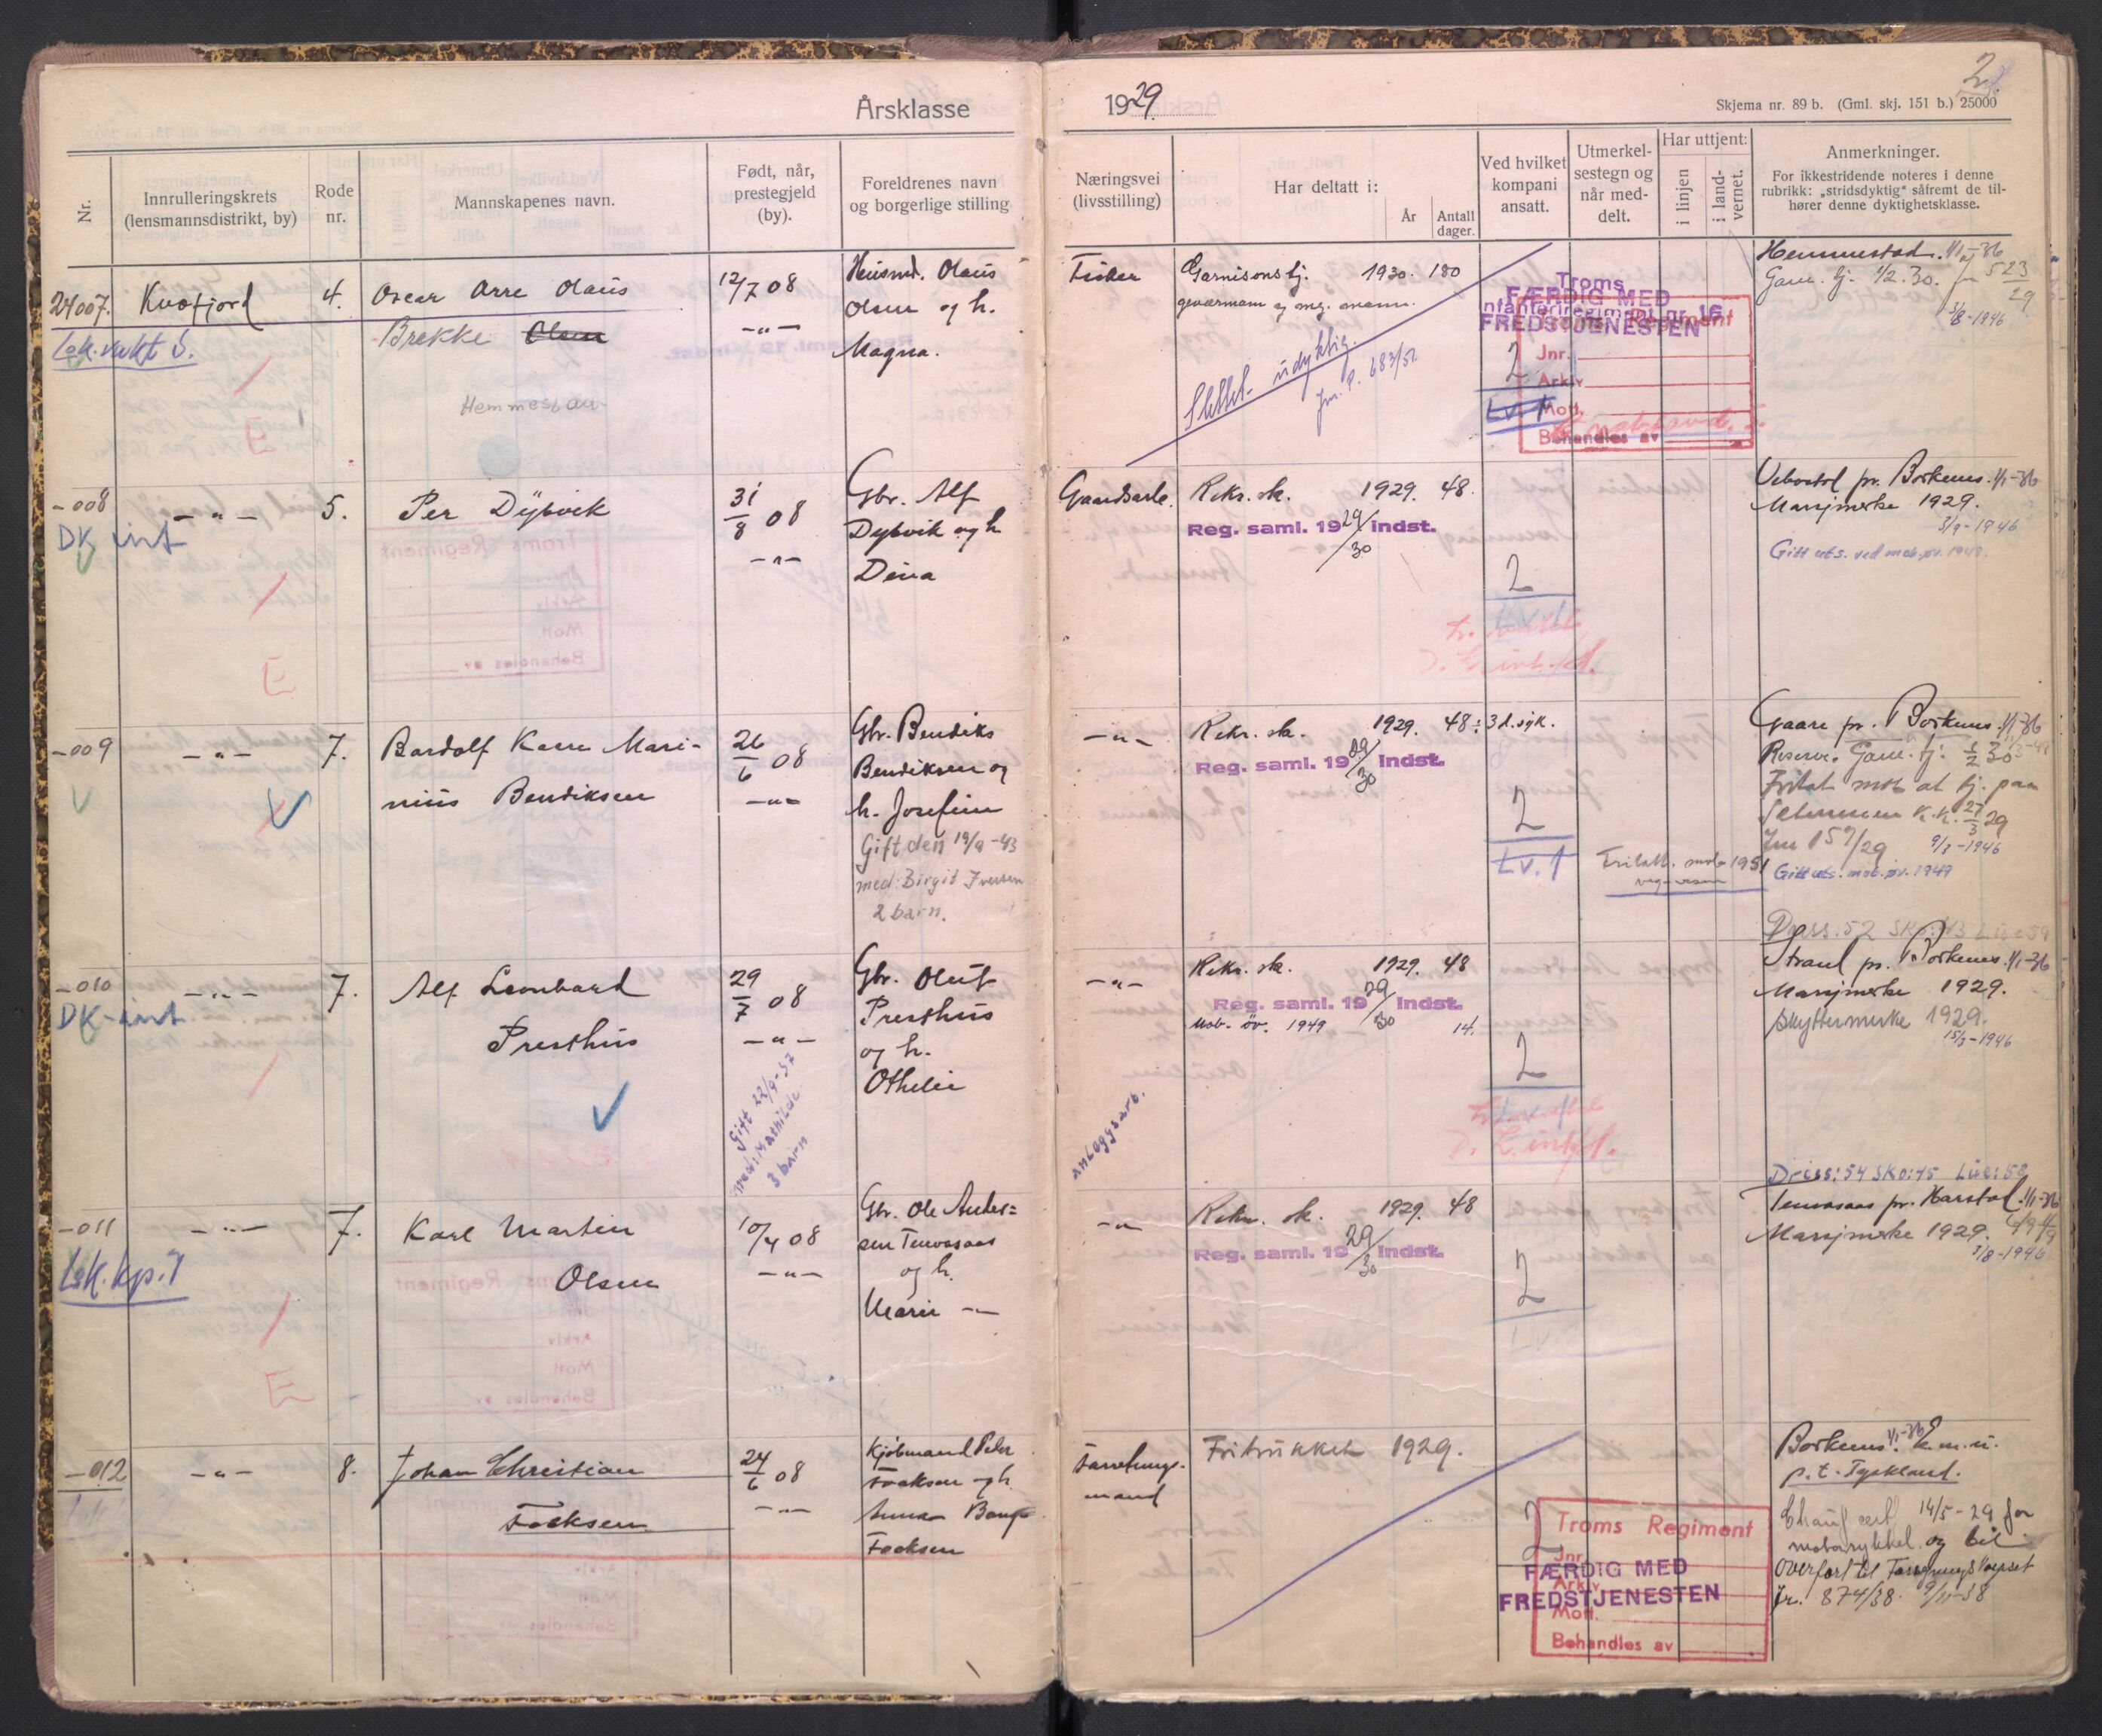 Årsklasse
1929.
2
Skjema nr. 89 b. (Gml. skj. 151 b.) 25000
Nr.
Innrulleringskrets
(lensmannsdistrikt, by)
Rode
nr.
Mannskapenes navn.
Født, når,
prestegjeld
(by).
Foreldrenes navn
og borgerlige stilling
Næringsvei
(livsstilling)
Har deltatt i:
År
Antall
dager.
Ved hvilket
kompani
ansatt.
Utmerkel-
sestegn og
når med-
delt.
Har uttjent:
i linjen
i land-
vernet.
Anmerkninger.
For ikkestridende noteres i denne
rubrikk: „stridsdyktig“ såfremt de til-
hører denne dyktighetsklasse.
24007.
Kvæfjord
4.
Oscar Arre Olaus
Brekke Olsen
12/7 08
-"-
Husmd. Olaus
Olsen og h.
Magna.
Fisker
Garnisonstj. 1930. 180
geværmann og mg. mann.
Slettet udyktig.
Jnr. P. 683/51
Troms
FÆRDIG MED
Infanteriregiment nr. 16
FREDSTJENESTEN
Jnr.
Arkiv
Mott.
Behandles av
2
Lv. 1
Hemmestad. 1/1-36
Garn. tj. 1/2. 30. jnr 523/29
3/8-1946
Lok. vakt S.
E
-008
DK int
-"-
5.
Per Dybvik
31/8 08
-"-
Gbr. Alf
Dybvik og h
Dina
Gaardsarb.
Rekr. sk. 1929. 48.
Reg. saml. 1929/30 indst.
2
Vebostad pr. Borkenes. 1/1-36
Marsjmerke 1929.
3/9-1946
Gitt uts. ved mob.øv. 1949.
E
-009
-"-
7.
Bardolf Kaare Mari-
nius Bendiksen
26/6 08
-"-
Gbr. Bendiks
Bendiksen og
h. Josefine
Gift den 19/9-43
med: Birgit Iversen
2 barn.
-"-
Rekr. sk. 1929. 48 ÷ 3 d. syk.
Reg. saml. 1929/30 indst.
2
Lv. 1
Fritatt. mob 1951
Gaare pr. Borkenes. 1/1-36
Reserve. Garn. tj: 1/2 30
Fritat mot at tj. paa
Setermoen K.K. 27/3 29
Jnr 157/29 9/8-1946
Gitt uts. mob.øv. 1949
-010
DK-int.
-"-
7.
Alf Leonhard
Presthus
29/7 08
-"-
Gift 22/9-37
med: Mathilde
3 barn
Gbr. Oluf
Presthus
og h.
Othelie
-"-
anleggsarb.
Rekr. sk. 1929. 48
Reg. saml. 1929/30 indst.
Mob. öv. 1949 14.
2
Strand pr. Borkenes. 1/1-36
Marsjmerke 1929.
Skyttermerke 1929.
15/3-1946
Driss: 54 Sko: 45 Lue: 58
-011
-"-
7.
Karl Martin
Olsen
10/4 08
-"-
Gbr. Ole Ander=
sen Tennvasaas
og h.
Marie -"-
-"-
Rekr. sk. 1929. 48
Reg. saml. 1929/30 indst.
2
Tennvasaas pr. Harstad. 1/1-36
Marsjmerke 1929.
3/8-1946
Lok. kp. 7
E
-012
-"-
8.
Johan Christian
Focksen
24/6 08
-"-
Kjøbmand Peder
Focksen og h.
Anna Bang
Focksen
Forretnings-
mand
Fritrukket 1929.
2
Troms Regiment
Jnr.
FÆRDIG MED
Arkiv
FREDSTJENESTEN
Mott.
Behandles av
Borkenes. 1/1-36 E.m.u.
p.t. Tyskland.
Chauf cert 14/5-29 for
motorsykkel og bil
Overført til Forsyningskorpset
Jr. 874/38. 9/11-38